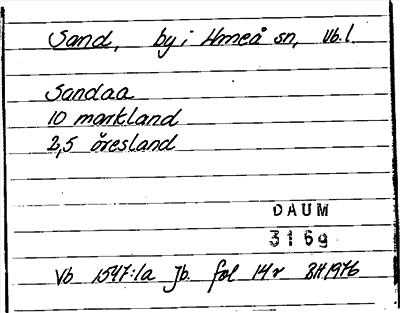 Sand, by i Umeå sn, Vb.l.
Sandaa
10 markland
2,5 öresland
DAUM
3169
Vb 1547:1a Jb. fol 14r BH1976